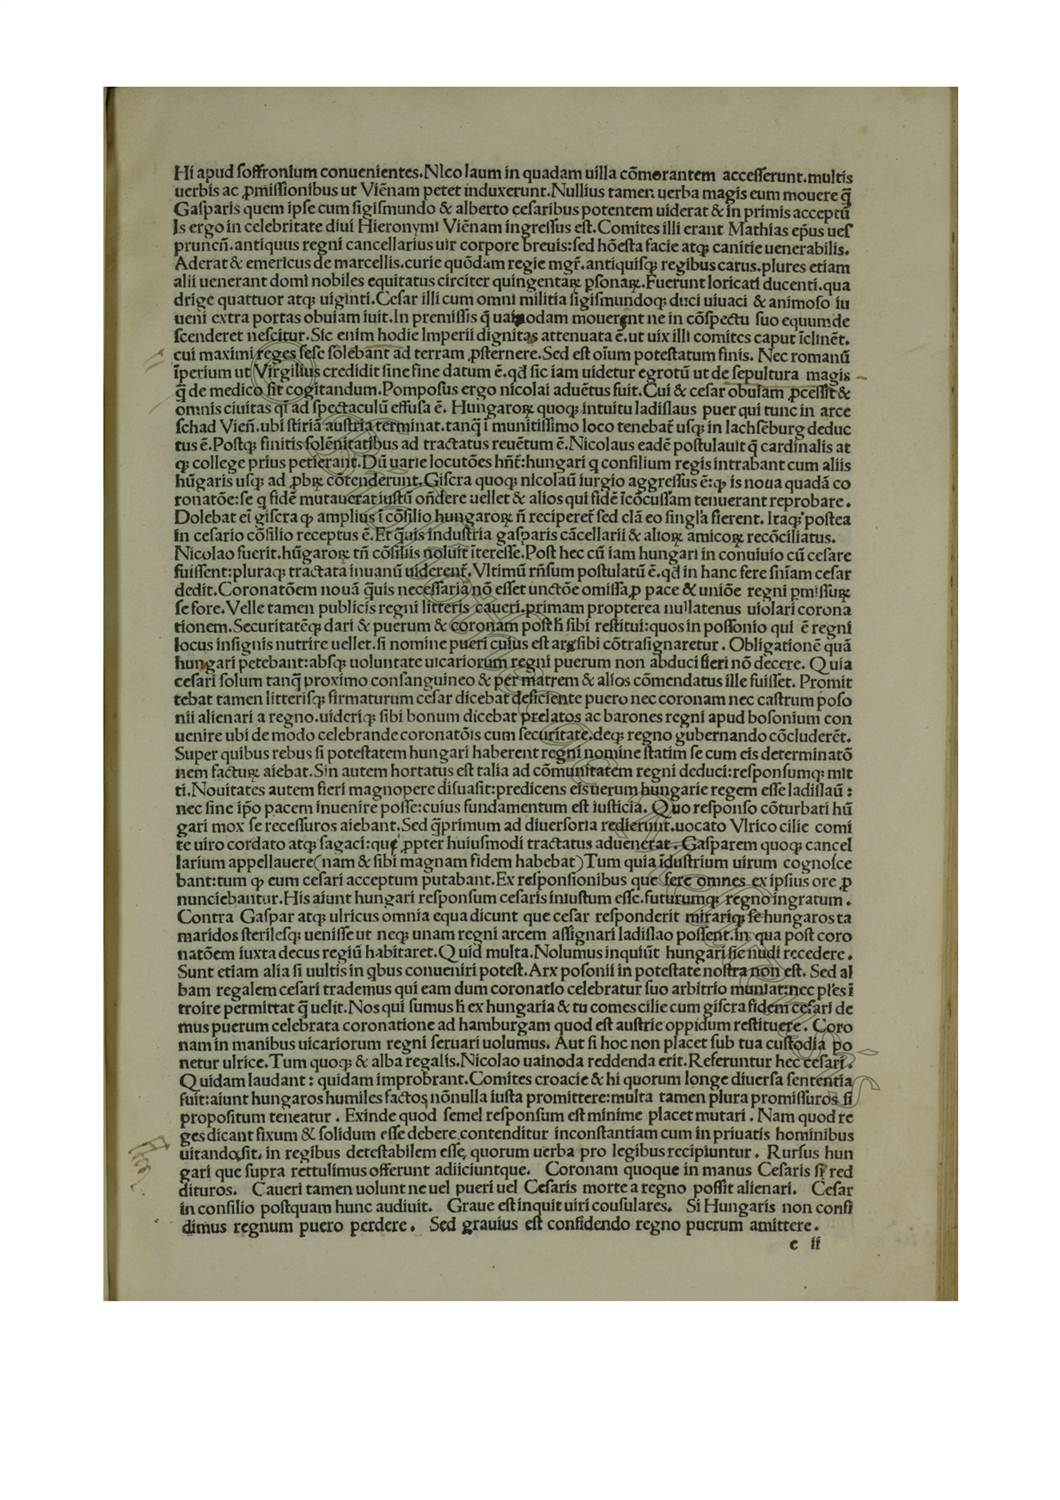 Hi apud soffronium conuenientes.NIco laum in quadam uilla cōmorantem accesserunt.multis
uerbis ac ꝓmissionibus ut Viēnam petet induxerunt.Nullius tamen uerba magis eum mouere q̄
Gasparis quem ipse cum sigismundo & alberto cesaribus potentem uiderat & in primis acceptū
Is ergo in celebritate diui Hieronymi Viēnam ingressus est.Comites illi erant Mathias ep̄us ues
pruncn̄.antiquus regni cancellarius uir corpore breuis:sed hōesta facie atq; canitie uenerabilis.
Aderat & emericus de marcellis.curie quōdam regie mgr̄.antiquisq; regibus carus.plures etiam
alii uenerant domi nobiles equitatus circiter quingentaꝝ ꝑsonaꝝ.Fuerunt loricati ducenti.qua
drige quattuor atq; uiginti.Cesar illi cum omni militia sigismundoq; duci uiuaci & animoso iu
ueni extra portas obuiam iuit.In premissis q̄ uainodam mouerent ne in cōspectu suo equum de
scenderet nescitur.Sic enim hodie Imperii dignitas attenuata ē.ut uix illi comites caput īclinēt.
cui maximi reges sese solebant ad terram ꝓsternere.Sed est oīum potestatum finis. Nec romanū
īperium ut Virgilius credidit sine fine datum ē.qd̄ sic iam uidetur egrotū ut de sepultura magis
q̄ de medico sit cogitandum.Pomposus ergo nicolai aduētus fuit.Cui & cesar obuiam ꝓcessit &
omnis ciuitas qī ad spectaculū effusa ē. Hungaroꝝ quoq; intuitu ladislaus puer qui tunc in arce
schad Vien̄.ubi stiriā austria terminat.tanq̄ ī munitissimo loco tenebat̄ usq; in lachsēburg deduc
tus ē.Postq; finitis solēnitatibus ad tractatus reuētum ē.Nicolaus eadē postulauit q̄ cardinalis at
q; college prius petierant.Dū uarie locutōes hn̄t̄:hungari q consilium regis intrabant cum aliis
hūgaris usq; ad ꝓbꝝ cōtenderunt.Giscra quoq; nicolaū iurgio aggressus ē:ꝙ is noua quadā co
ronatōe:se q fidē mutauerat iustū on̄dere uellet & alios qui fidē īcōcussam tenuerant reprobare.
Dolebat ei giscra ꝙ amplius ī cōsilio hungaroꝝ n̄ reciperet̄ sed clā eo singl'a fierent. Iraq; postea
in cesario cōsilio receptus ē.Et q̄uis industria gasparis cācellarii & alioꝝ amicoꝝ recōciliatus.
Nicolao fuerit.hūgaroꝝ tn̄ cōsiliis noluit īteresse.Post hec cū iam hungari in conuiuio cū cesare
fuissent:pluraq; tractata inuanū uiderent̄.Vltimū rn̄sum postulatū ē.qd̄ in hanc fere sn̄iam cesar
dedit.Coronatōem nouā q̄uis necessaria nō esset unctōe omissa ꝓ pace & uniōe regni pmissuꝝ
se fore.Velle tamen publicis regni litteris caueri.primam propterea nullatenus uiolari corona
tionem.Securitatēq; dari & puerum & coronam post h̄ sibi restitui:quos in possonio qui ē regni
locus insignis nutrire uellet.si nomine pueri cuius est arx sibi cōtrasignaretur.Obligationē quā
hungari petebant:absq; uoluntate uicariorum regni puerum non abduci fieri nō decere. Quia
cesari solum tanq̄ proximo consanguineo & per matrem & alios cōmendatus ille fuisset. Promit
tebat tamen litterisq; firmaturum cesar dicebat deficiente puero nec coronam nec castrum poso
nii alienari a regno.uideriq; sibi bonum dicebat prelatos ac barones regni apud bosonium con
uenire ubi de modo celebrande coronatōis cum securitate.deq; regno gubernando cōcluderēt.
Super quibus rebus si potestatem hungari haberent regni nomine statim se cum eis determinatō
nem factuꝝ aiebat.Sin autem hortatus est talia ad cōmunitatem regni deduci:responsumq; mit
ti.Nouitates autem fieri magnopere disuasit:predicens eis uerum hungarie regem esse ladislaū :
nec sine ip̄o pacem inuenire posse:cuius fundamentum est iusticia. Quo responso cōturbati hū
gari mox se recessuros aiebant.Sed q̄primum ad diuersoria redierunt.uocato Vlrico cilie comi
te uiro cordato atq; sagaci:que ꝓpter huiusmodi tractatus aduenerat.Gasparem quoq; cancel
larium appellauere(nam & sibi magnam fidem habebat)Tum quia īdustrium uirum cognosce
bant:tum ꝙ eum cesari acceptum putabant.Ex responsionibus que fere omnes ex ipsius ore ꝓ
nunciebantur.His aiunt hungari responsum cesaris iniustum esse.futurumq; regno ingratum.
Contra Gaspar atq; ulricus omnia equa dicunt que cesar responderit mirariq; se hungaros ta
maridos sterilesq; uenisse ut neq; unam regni arcem assignari ladislao possent.in qua post coro
natōem iuxta decus regiū habitaret.Quid multa.Nolumus inquiūt hungari sic nudi recedere.
Sunt etiam alia si uultis in q̇bus conueniri potest.Arx posonii in potestate nostra non est. Sed al
bam regalem cesari trademus qui eam dum coronatio celebratur suo arbitrio muniat:nec pl'es ī
troire permittat q̄ uelit.Nos qui sumus h̄ ex hungaria & tu comes cilie cum giscra fidem cesari de
mus puerum celebrata coronatione ad hamburgam quod est austrie oppidum restituere. Coro
nam in manibus uicariorum regni seruari uolumus. Aut si hoc non placet sub tua custodia po
netur ulrice.Tum quoq; & alba regalis.Nicolao uainoda reddenda erit.Referuntur hec cesari.
Quidam laudant: quidam improbrant.Comites croacie & hi quorum longe diuersa sententia
fuit:aiunt hungaros humiles factos nōnulla iusta promittere:multa tamen plura promissuros si
propositum teneatur. Exinde quod semel responsum est minime placet mutari. Nam quod re
ges dicant fixum & solidum esse debere.contenditur inconstantiam cum in priuatis hominibus
uitandosit. in regibus detestabilem esse, quorum uerba pro legibus recipiuntur. Rursus hun
gari que supra rettulimus offerunt adiiciuntque. Coronam quoque in manus Cesaris si red
dituros. Caueri tamen uolunt ne uel pueri uel Cesaris morte a regno possit alienari. Cesar
in consilio postquam hunc audiuit. Graue est inquit uiri cousulares. Si Hungaris non confi
dimus regnum puero perdere. Sed grauius est confidendo regno puerum amittere.
c ii